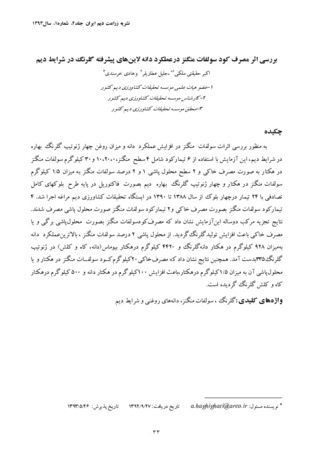 نشریه زراعت دیم ایران جلد۲، شماره۱، سال۱۳۹۲
بررسی اثر مصرف کود سولفات منگنز درعملکرد دانه لاین‌های پیشرفته گلرنگ در شرایط دیم
۱-عضو هیات علمی موسسه تحقیقات کشاورزی دیم کشور
۲-کارشناس موسسه تحقیقات کشاورزی دیم کشور
۳-محقق موسسه تحقیقات کشاورزی دیم کشور
چکیده
به منظور بررسی اثرات سولفات منگنز در افزایش عملکرد دانه و میزان روغن چهار ژنوتیپ گلرنگ بهاره
در شرایط دیم، این آزمایش با استفاده از ۶ تیمارکود شامل ۴ سطح منگنز،۱۰،۲۰،۰ و ۳۰ کیلو گرم سولفات منگنز
در هکتار به صورت مصرف خاکی و ۲ سطح محلول پاشی ۱ و ۲ درصد سولفات منگنز به میزان ۱/۵ کیلوگرم
سولفات منگنز در هکتار و چهار ژنوتیپ گلرنگ بهاره دیم بصورت فاکتوریل در پایه طرح بلوکهای کامل
تصادفی با ۲۴ تیمار درچهار بلوک از سال ۱۳۸۸ تا ۱۳۹۰ در ایستگاه تحقیقات کشاورزی دیم مراغه اجرا شد. ۴
تیمارکود سولفات منگنز بصورت مصرف خاکی و۲ تیمارکود سولفات منگنز صورت محلول پاشی مصرف شدند.
نتایج تجزیه مرکب دوساله این‌آزمایش نشان داد که مصرف‌کودسولفات منگنز بصورت محلول‌پاشی برگی و یا
مصرف خاکی باعث افزایش تولیدگلرنگ‌گردید. از محلول پاشی ۲ درصد سولفات منگنز ، بالاترین‌عملکرد دانه
بمیزان ۹۲۸ کیلوگرم در هکتار دانه‌گلرنگ و ۴۴۲۰ کیلوگرم درهکتار بیوماس(دانه، کاه و کلش) در ژنوتیپ
گلرنگ۳۳۵بدست آمد. همچنین نتایج نشان داد که مصرف‌خاکی ۲۰کیلوگرم‌کود سولفات منگنز در هکتار و یا
محلول‌پاشی آن به میزان ۱/۵کیلوگرم درهکتار،باعث افزایش ۱۰۰کیلوگرم در هکتار دانه و ۵۰۰ کیلوگرم درهکتار
کاه و کلش گلرنگ گردیده است.
واژه‌های کلیدی:گلرنگ ، سولفات منگنز، دانه‌های روغنی و شرایط دیم
* نویسنده مسئول: a.haghighati@areo.ir تاریخ دریافت: ۱۳۹۲/۹/۲۷ تاریخ پذیرش: ۱۳۹۳/۵/۲۶
۳۳